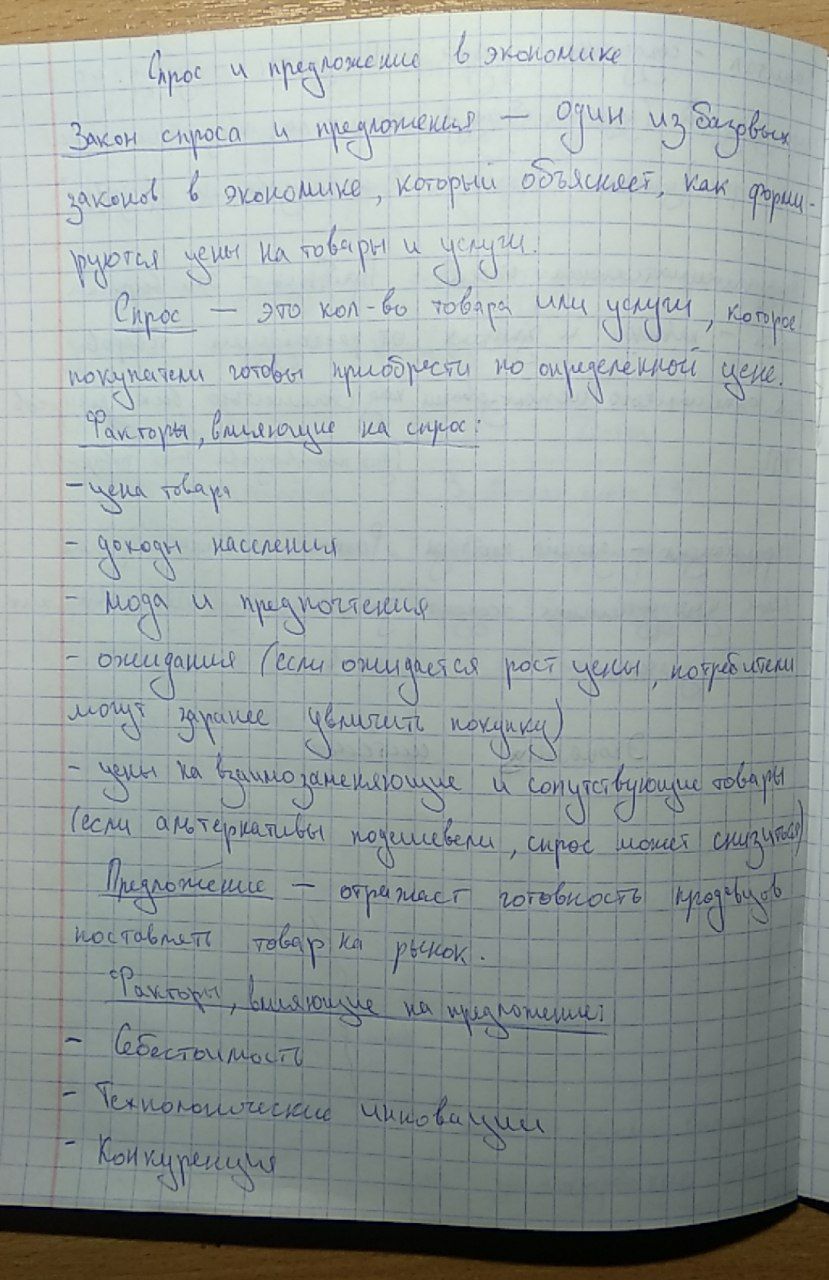 Спрос и предложение в экономике
Закон спроса и предложения — один из базовых
законов в экономике, который объясняет, как форми-
руются цены на товары и услуги.
Спрос — это кол-во товара или услуги, которое
покупатели готовы приобрести по определенной цене.
Факторы, влияющие на спрос:
- цена товара
- доходы населения
- мода и предпочтения
- ожидания (если ожидается рост цены, потребители
могут заранее увличить покупку)
- цены на взаимозаменяющие и сопутствующие товары
(если альтернативы подешевели, спрос может снизиться)
Предложение — отражает готовность продавцов
поставлять товар на рынок.
Факторы, влияющие на предложение:
- Себестоимость
- Технологические инновации
- Конкуренция